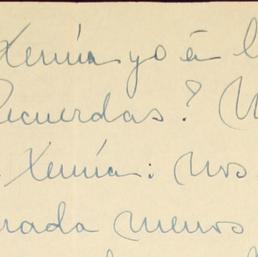 Xenia yo á l
Recuerdas? N
Xenia: Nos
rada menos